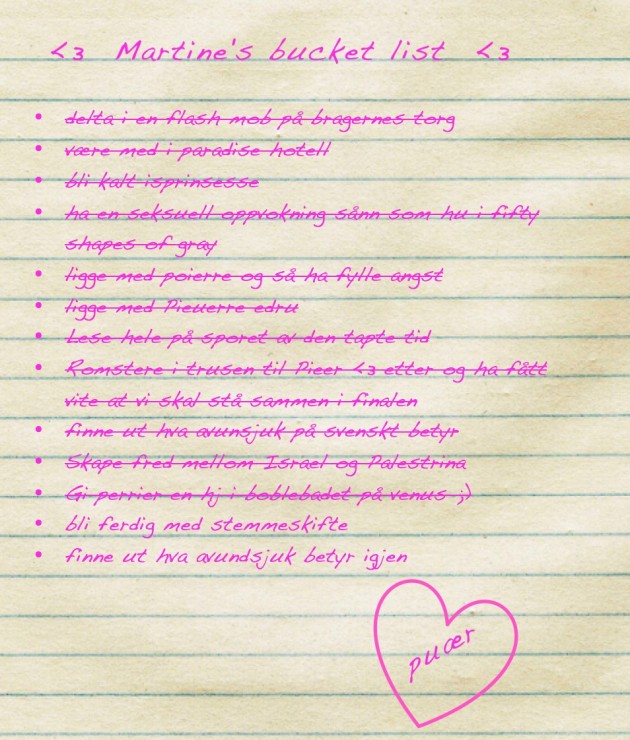 <3 Martine's bucket list <3
• delta i en flash mob på bragernes torg
• være med i paradise hotell
• bli kalt isprinsesse
• ha en seksuell oppvokning sånn som hu i fifty
shapes of gray
• ligge med poierre og så ha fylle angst
• ligge med Pieuerre edru
• Lese hele på sporet av den tapte tid
• Romstere i trusen til Pieer <3 etter og ha fått
vite at vi skal stå sammen i finalen
• finne ut hva avunsjuk på svenskt betyr
• Skape fred mellom Israel og Palestrina
• Gi perrier en hj i boblebadet på venus ;)
• bli ferdig med stemmeskifte
• finne ut hva avundsjuk betyr igjen
puær